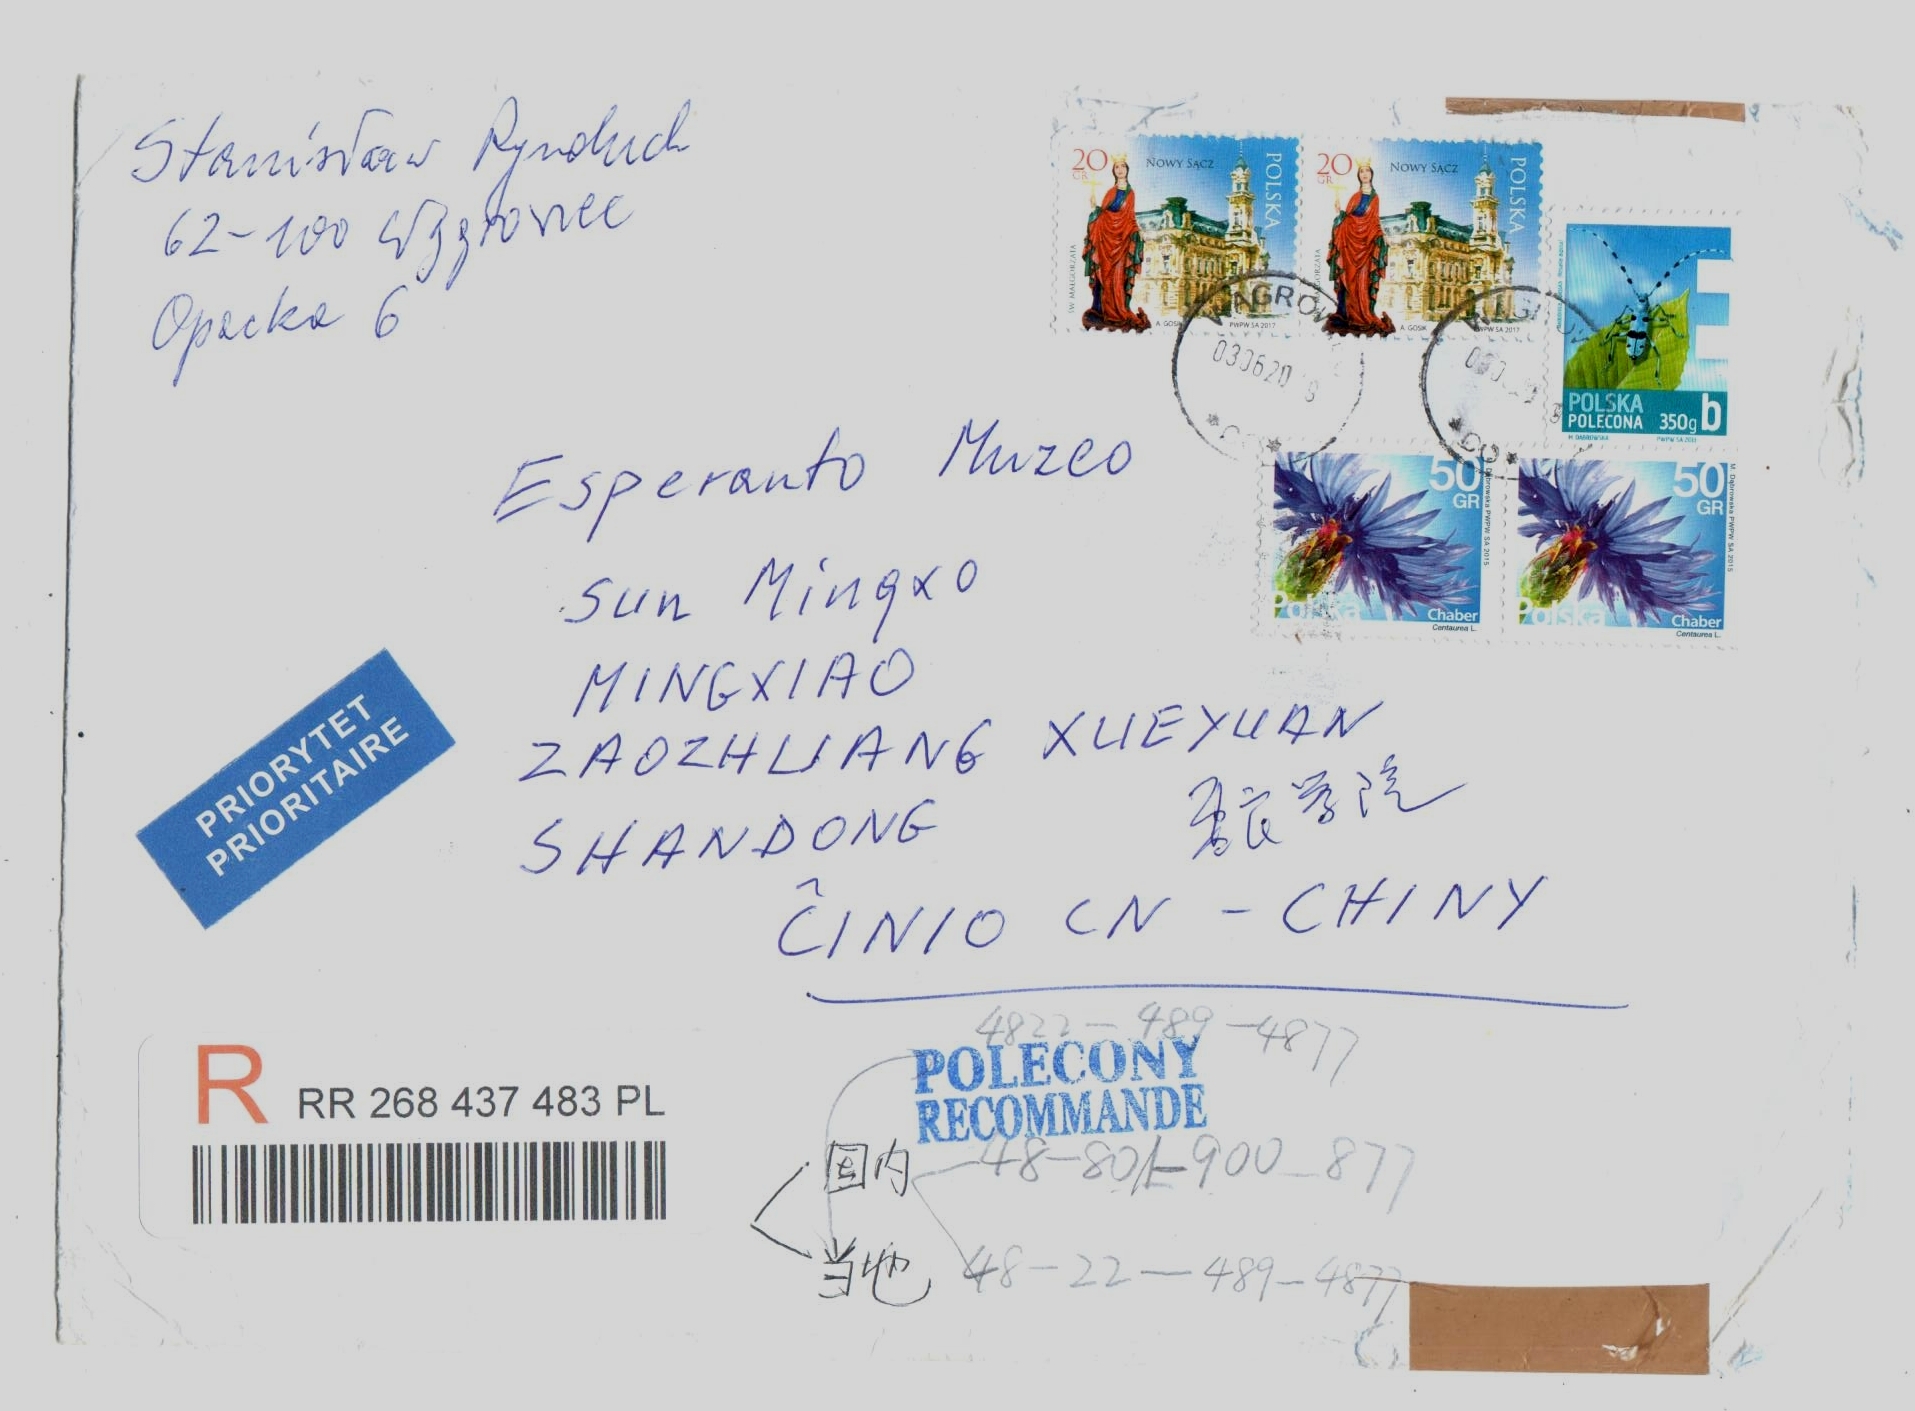 Stanisław Rynduch
62-100 Wągrowiec
Opacka 6
20 GR
NOWY SĄCZ
POLSKA
ŚW. MAŁGORZATA
A. GOSIK PWPW SA 2017
20 GR
NOWY SĄCZ
POLSKA
A. GOSIK PWPW SA 2017
WĄGROW
030620
E
POLSKA
POLECONA 350g b
M. DĄBROWSKA
50 GR
Polska
Chaber
Centaurea L.
M. Dąbrowska PWPW SA 2015
50 GR
Polska
Chaber
Centaurea L.
M. Dąbrowska PWPW SA 2015
Esperanto Muzeo
Sun Mingxo
MINGXIAO
ZAOZHUANG XUEYUAN
学院
SHANDONG
ĈINIO CN - CHINY
PRIORYTET
PRIORITAIRE
R RR 268 437 483 PL
4822-489-4877
POLECONY
RECOMMANDE
国内 48-801-900-877
当地 48-22-489-4877